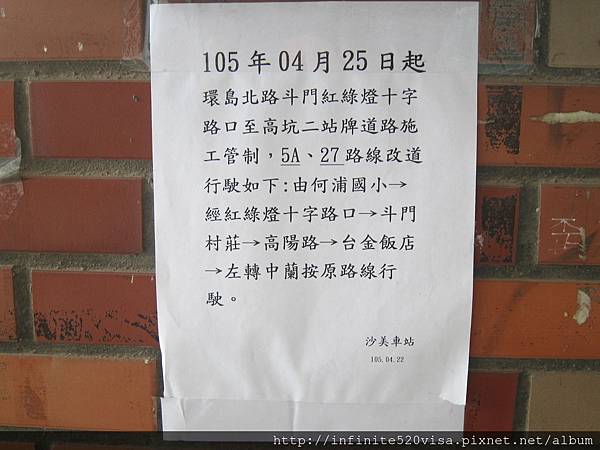 105年04月25日起
環島北路斗門紅綠燈十字
路口至高坑二站牌道路施
工管制，5A、27路線改道
行駛如下:由何浦國小→
經紅綠燈十字路口→斗門
村莊→高陽路→台金飯店
→左轉中蘭按原路線行
駛。
沙美車站
105.04.22
http://infinite520visa.pixnet.net/album